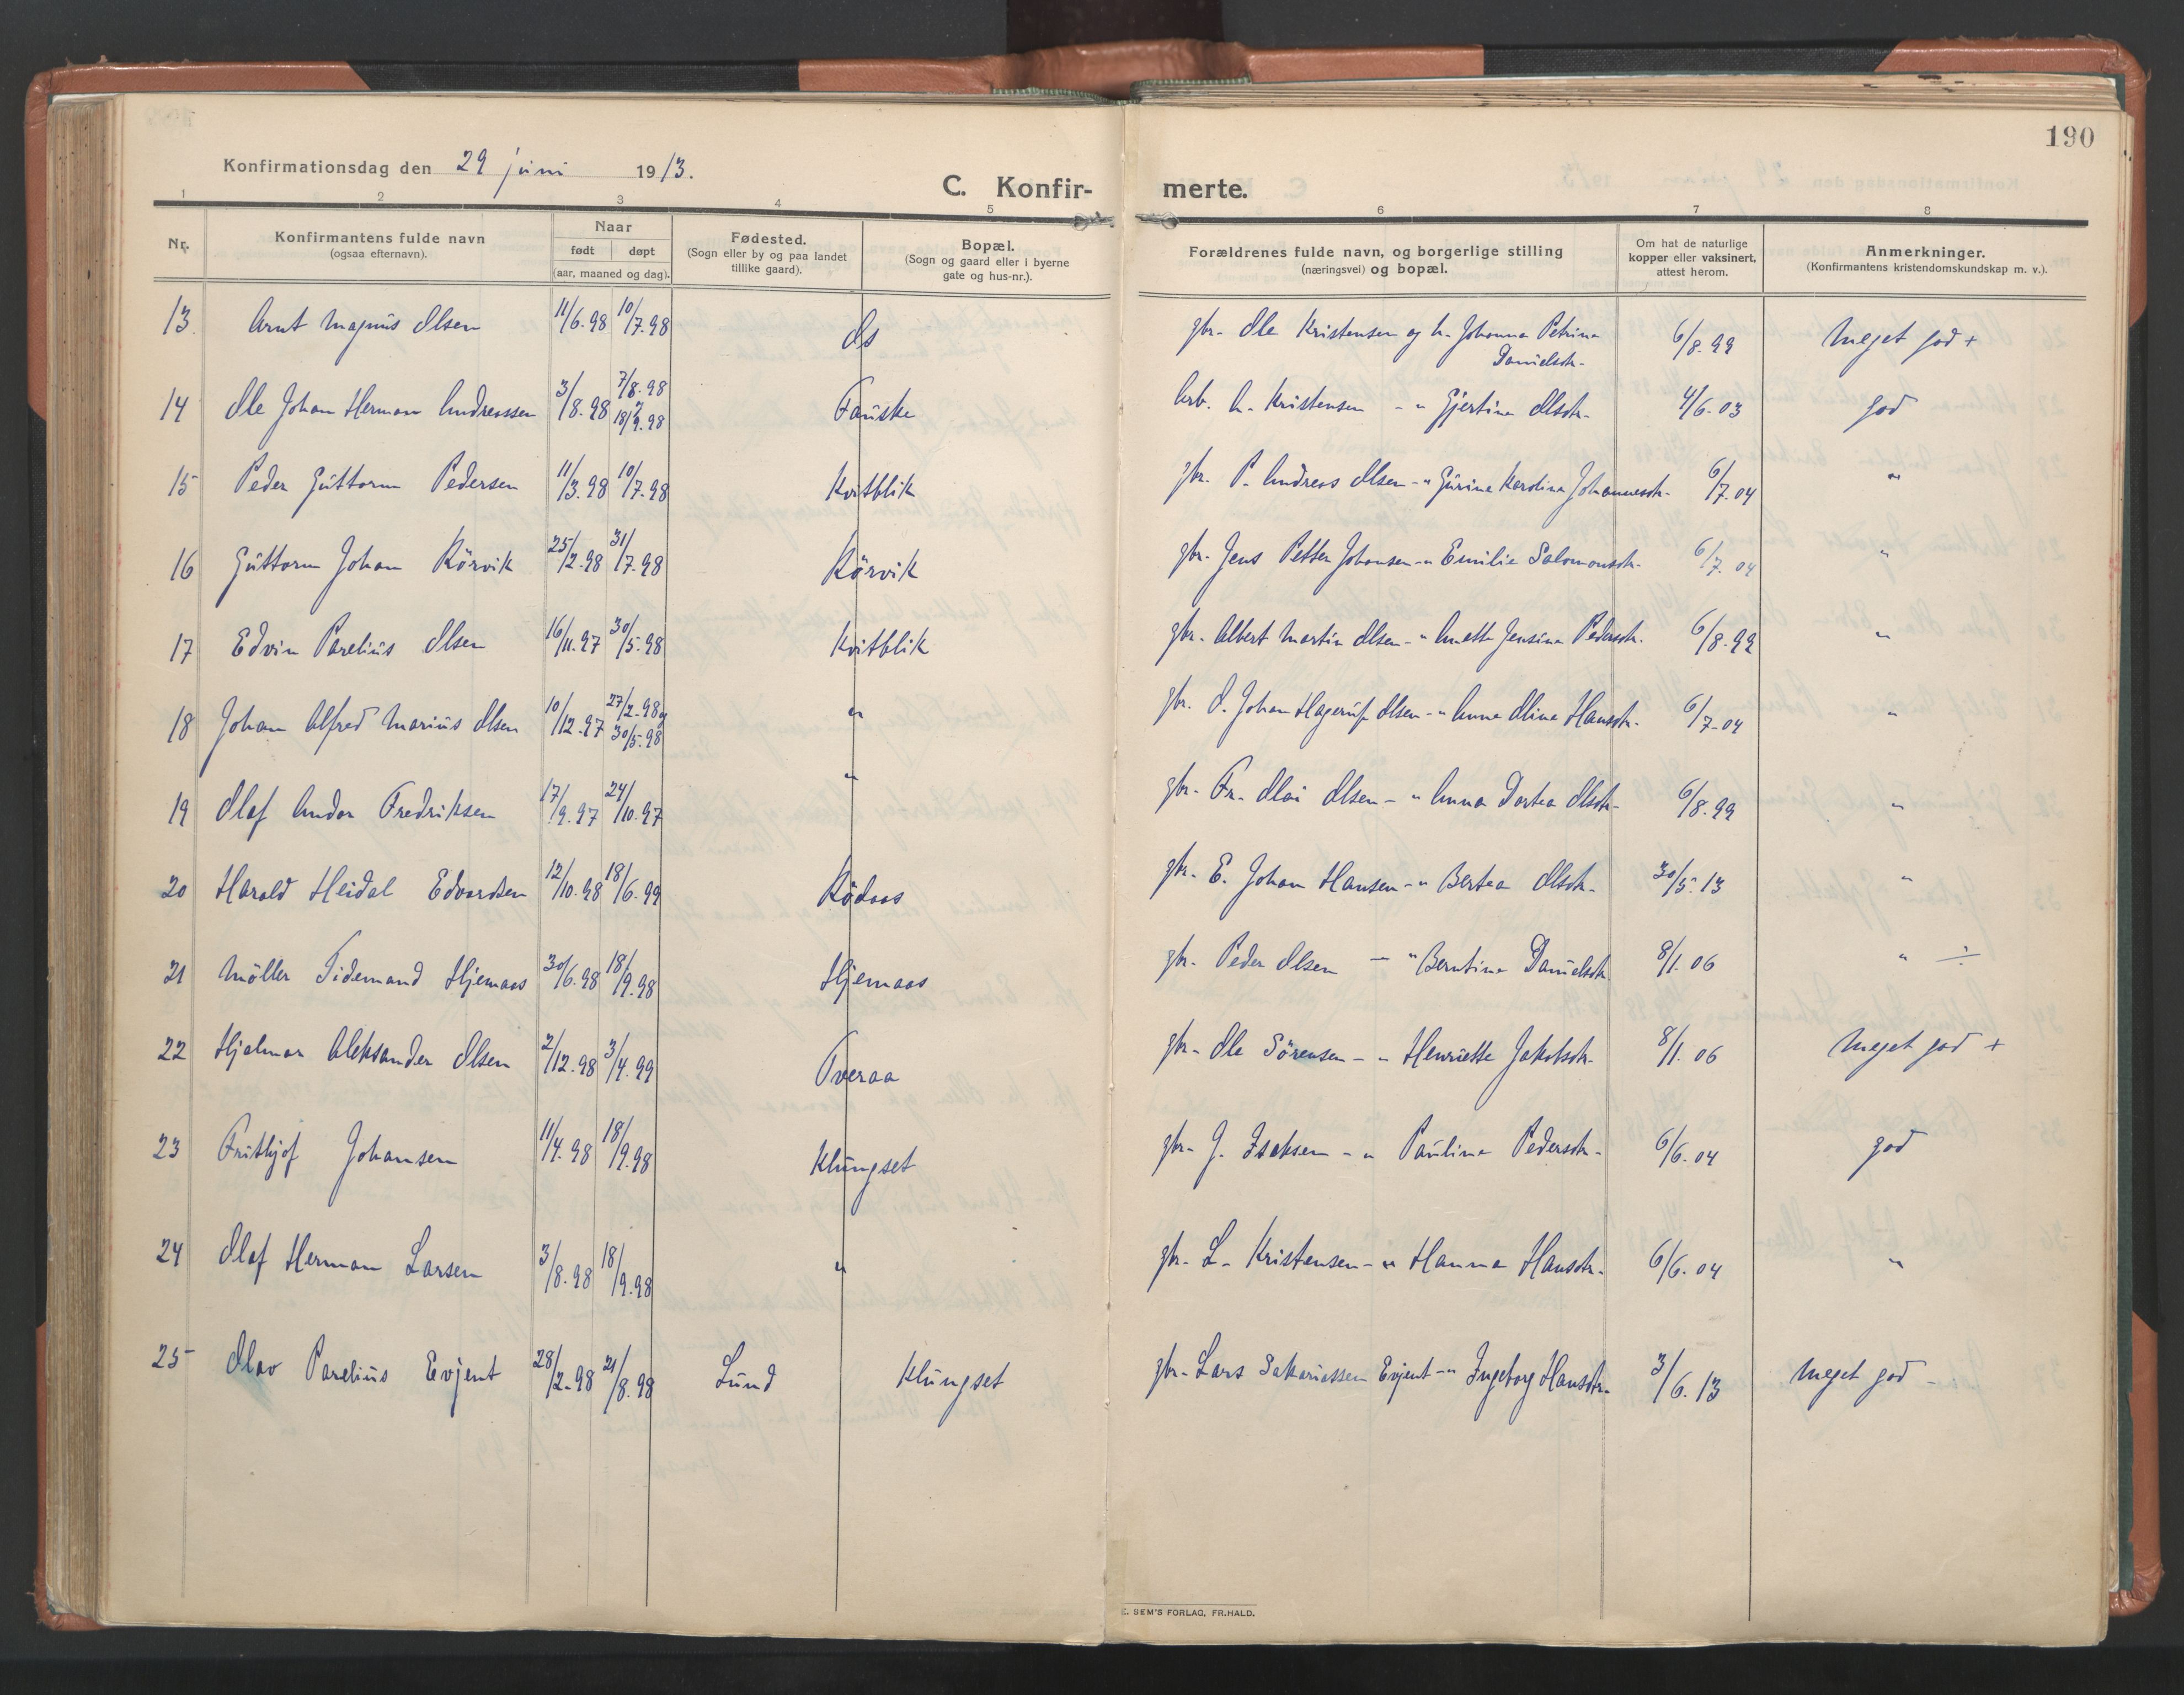 190
Konfirmationsdag den 29 juni 1913.
C. Konfir-
merte.
1 2 3 4 5 6 7 8
Nr. Konfirmantens fulde navn (ogsaa efternavn). Naar født døpt (aar, maaned og dag). Fødested. (Sogn eller by og paa landet tillike gaard). Bopæl. (Sogn og gaard eller i byerne gate og hus-nr.). Forældrenes fulde navn, og borgerlige stilling (næringsvei) og bopæl. Om hat de naturlige kopper eller vaksinert, attest herom. Anmerkninger. (Konfirmantens kristendomskundskap m. v.).
13. Arnt Magnus Olsen 11/6.98 10/7.98 Os gbr. Ole Kristensen og h. Johanna Petrine Danielsdtr. 6/8.99 Meget god +
14 Ole Johan Herman Andreassen 3/8.98 7/8.98 og 18/9.98 Fauske Arb. A. Kristensen - " Gjertine Olsdtr. 4/6.03 god
15 Peder Guttorm Pedersen 11/3.98 10/7.98 Kvitblik gbr. P. Andreas Olsen - " Gurine Karoline Johannesdtr. 6/7.04 "
16 Guttorm Johan Rörvik 25/2.98 31/7.98 Rörvik gbr. Jens Petter Johansen - " Emilie Salomonsdtr. 6/7.04 "
17 Edvin Parelius Olsen 16/11.97 30/5.98 Kvitblik gbr. Albert Martin Olsen - " Anette Jensine Pedersdtr. 6/8.99 "
18 Johan Alfred Marius Olsen 10/12.97 27/2.98 og 30/5.98 " gbr. O. Johan Hagerup Olsen - " Anna Oline Hansdtr. 6/7.04 "
19 Olaf Andor Fredriksen 17/9.97 24/10.97 " gbr. Fr. Olai Olsen - " Anna Dortea Olsdtr. 6/8.99 "
20 Harald Heidal Edvardsen 12/10.98 18/6.99 Rödaas gbr. E. Johan Hansen - " Bertea Olsdtr. 30/5.13 "
21 Möller Tidemand Hjemaas 30/6.98 18/9.98 Hjemaas gbr. Peder Olsen - " Berntine Danielsdtr. 8/1.06 " ÷
22 Hjalmar Aleksander Olsen 2/12.98 3/4.99 Tveraa gbr. Ole Sörensen - " Henriette Jakobsdtr. 8/1.06 Meget god +
23 Frithjof Johansen 11/4.98 18/9.98 Klungset gbr. J. Isaksen - " Pauline Pedersdtr. 6/6.04 god
24 Olaf Herman Larsen 3/8.98 18/9.98 " gbr. L. Kristensen - " Hanna Hansdtr. 6/6.04 "
25 Olav Parelius Evjent 28/2.98 21/8.98 Lund Klungset gbr. Lars Sakariassen Evjent - " Ingeborg Hansdtr. 3/6.13 Meget god -
E. SEM'S FORLAG, FR.HALD.